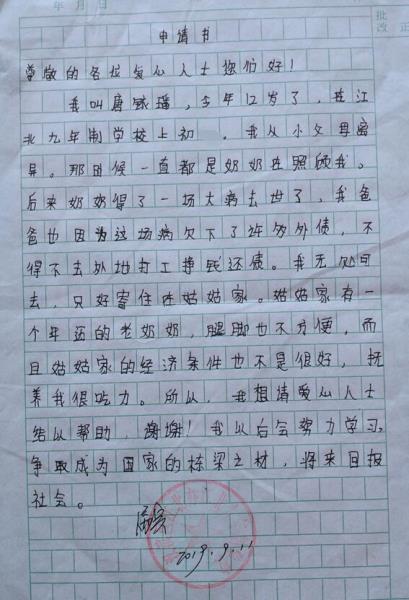 年 月 日
批
改 正
申请书
尊敬的各位爱心人士您们好！
我叫唐 瑶，今年12岁了，在江
北九年制学校上初 。我从小父母离
异。那时候一直都是奶奶在照顾我。
后来奶奶得了一场大病去世了，我爸
爸也因为这场病欠下了许多外债，不
得不去外地打工挣钱还债。我无处可
去，只好寄住在姑姑家。姑姑家有一
个年迈的老奶奶，腿脚也不方便，而
且姑姑家的经济条件也不是很好，抚
养我很吃力。所以，我想请爱心人士
给以帮助，谢谢！我以后会努力学习，
争取成为国家的栋梁之材，将来回报
社会。
2019.9.11